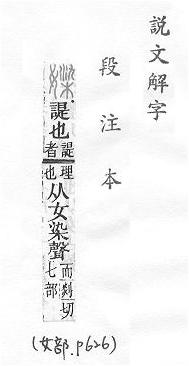 説文解字
段注本
𡣪
諟也
諟者
理也
从女染聲
而剡切
七部
(女部.p626)